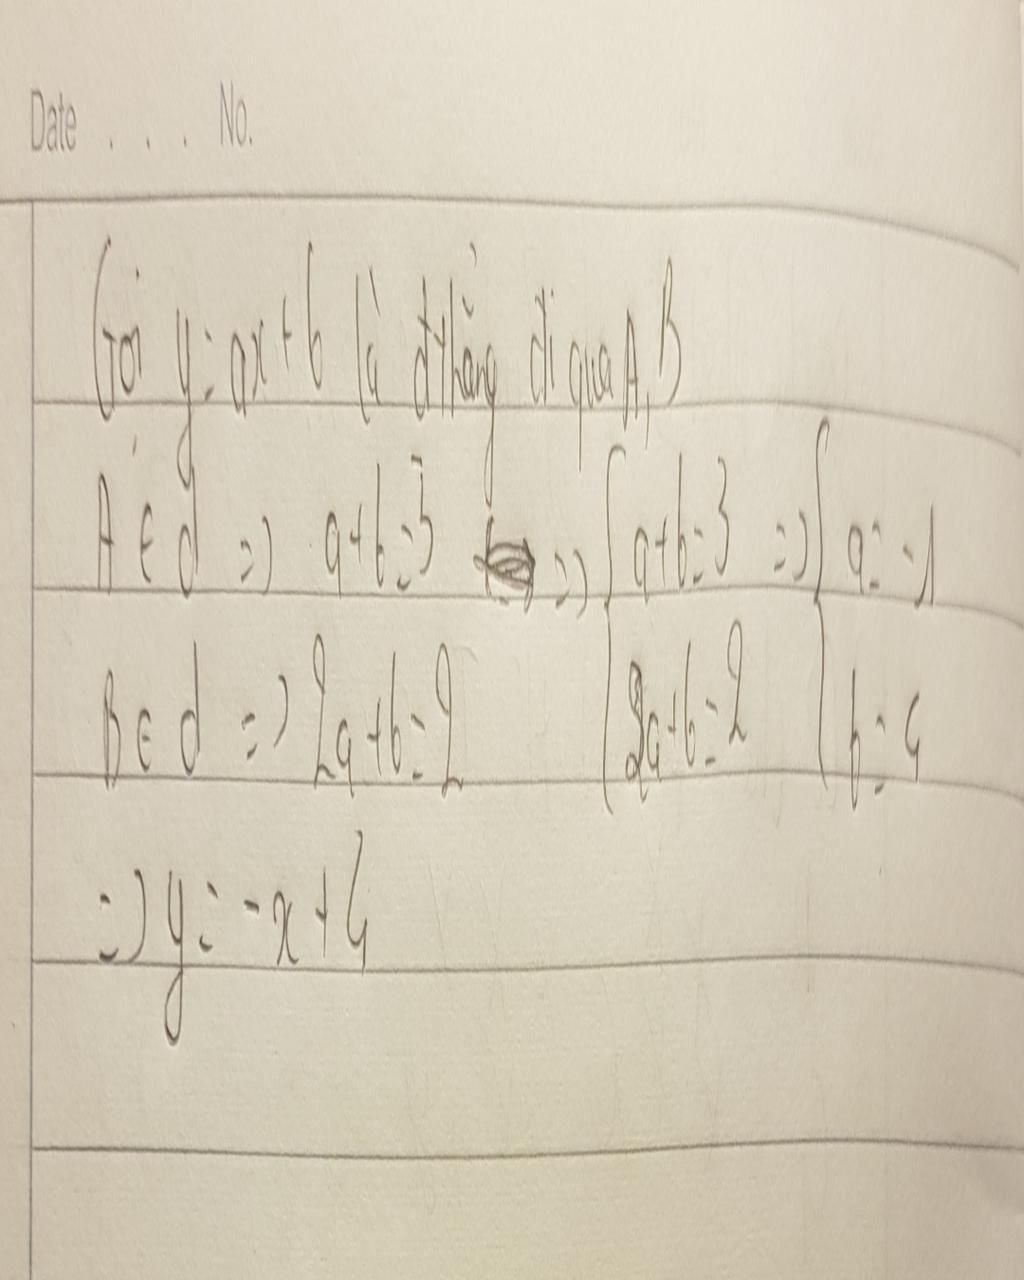 Date . . . No.
Gọi y = ax + b là đthẳng đi qua A, B
A ∈ d => a+b=3 => { a+b=3 => { a = -1
B ∈ d => 2a+b=2 { 2a+b=2 { b = 4
=> y = -x + 4